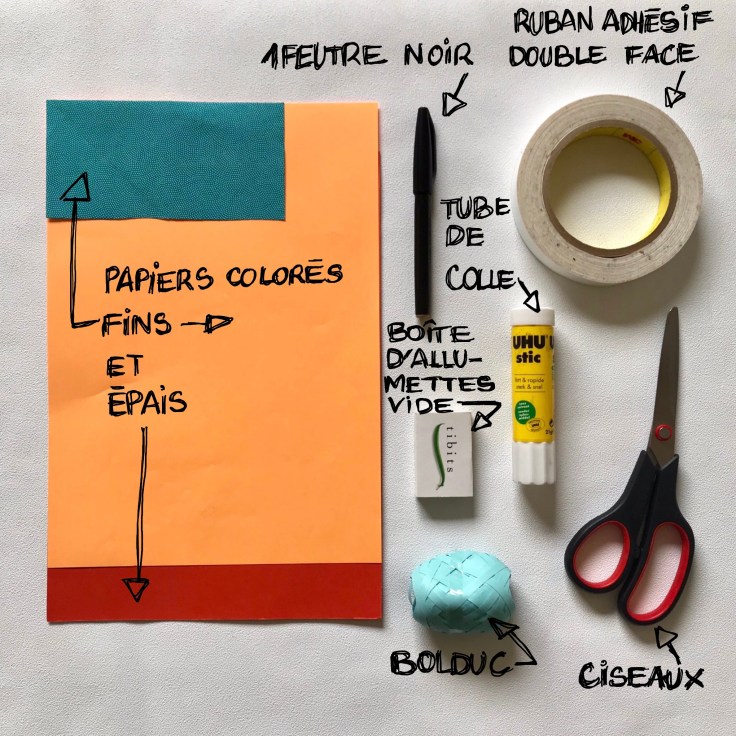 1 FEUTRE NOIR
RUBAN ADHÉSIF
DOUBLE FACE
PAPIERS COLORÉS
FINS
ET
ÉPAIS
TUBE
DE
COLLE
BOÎTE
D'ALLU-
METTES
VIDE
UHU
stic
tibits
BOLDUC
CISEAUX